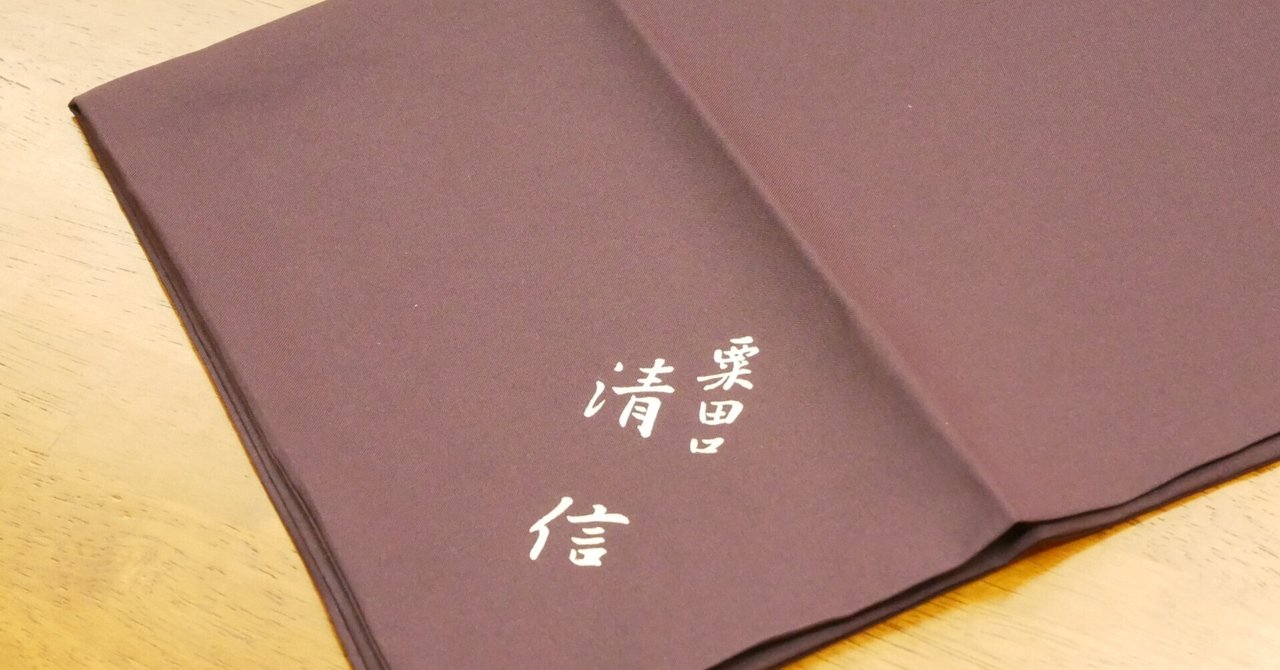 粟田口
清信